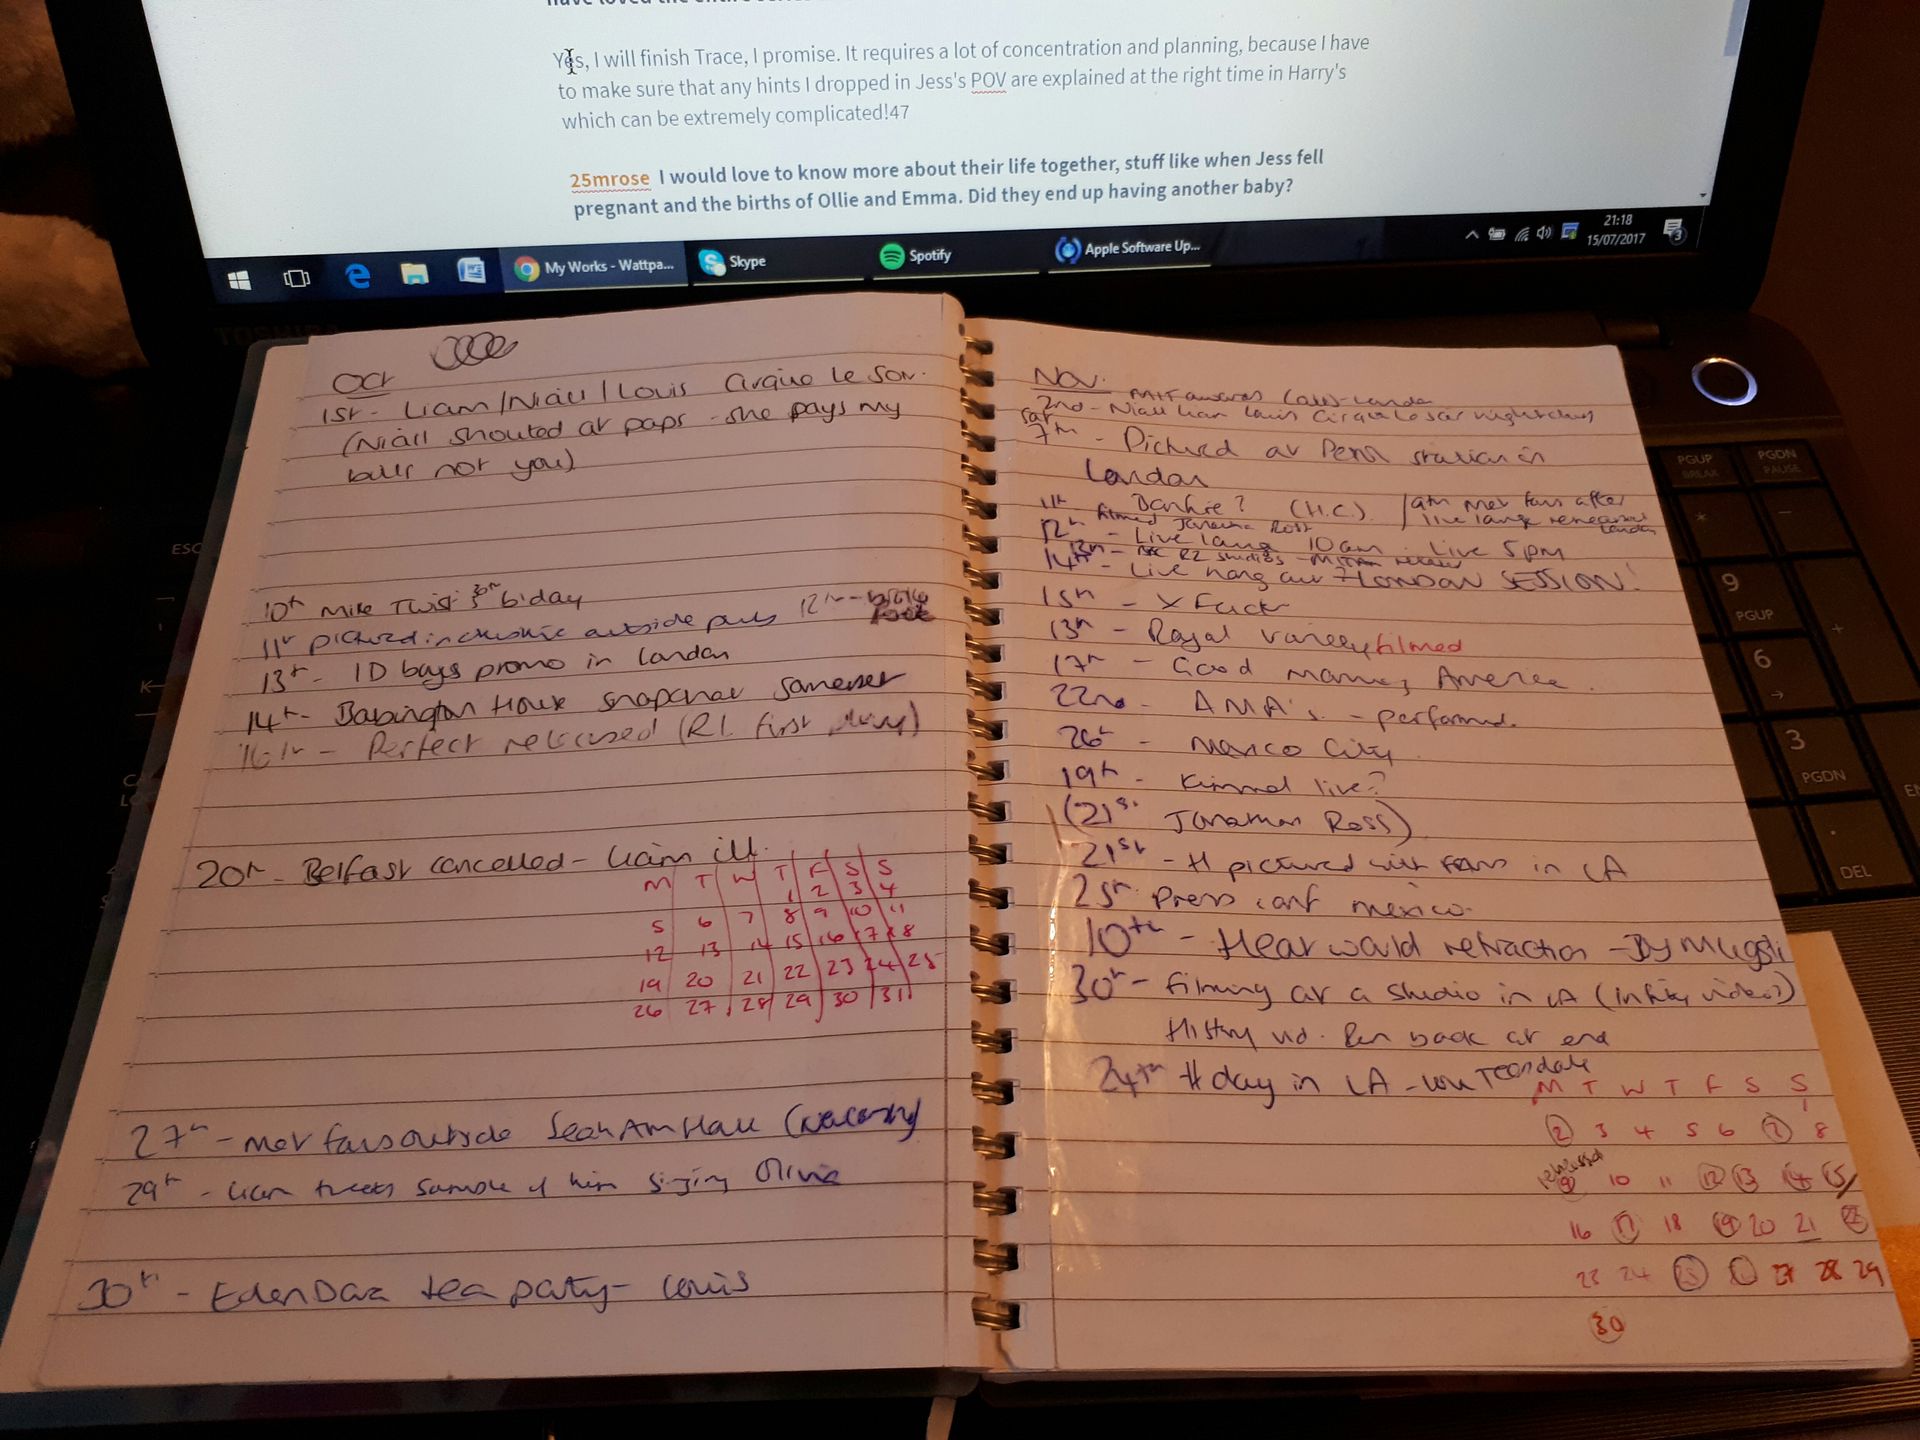 Yes, I will finish Trace, I promise. It requires a lot of concentration and planning, because I have
to make sure that any hints I dropped in Jess's POV are explained at the right time in Harry's
which can be extremely complicated!47
25mrose I would love to know more about their life together, stuff like when Jess fell
pregnant and the births of Ollie and Emma. Did they end up having another baby?
21:18
15/07/2017
3
My Works - Wattpa...
Skype
Spotify
Apple Software Up...
TOSHIBA
Oct
1st - Liam/Niall/Louis Cirque Le Soir.
(Niall shouted at paps - she pays my
bills not you)
10th Mike Twist 30th b'day
11th pictured in outside pub 12th -
13th - 1D boys promo in London
14th - Babington House snapchat Somerset
16th - Perfect released (R1. first play)
20th - Belfast cancelled - Liam ill.
M T W T F S S
1 2 3 4
5 6 7 8 9 10 11
12 13 14 15 16 17 18
19 20 21 22 23 24 25
26 27 28 29 30 31
27th - met fans outside Seah Am Hall
29th - Liam tweets sample of him singing Olivia
30th - Eden Daz tea party - Louis
Nov.
awards London
2nd - Niall Liam Louis Cirque Le Soir nightclub
Sat
7th - Pictured at Petrol station in
London
11th - Bonfire? (H.C.) / 9th met fans after
live lounge rehearsal
London
filmed Jonathan Ross
12th - Live Lounge 10am - Live 5pm
13th - R2 studios -
14th - Live hang out LONDON SESSION!
15th - X Factor
13th - Royal variety filmed
17th - Good Morning America.
22nd - AMA's - performed.
26th - Mexico City.
19th - Kimmel live?
(21st Jonathan Ross)
21st - H pictured with fans in LA
25th Press conf mexico.
10th - Hear would retraction - By Mugsli
30th - filming at a studio in LA (Infinity video?)
History vid. Ben back at end
24th H day in LA - Lou Teasdale
M T W T F S S
1
2 3 4 5 6 7 8
released
9 10 11 12 13 14 15
16 17 18 19 20 21 22
23 24 25 27 28 29
30
ESC
PGUP
BREAK
PGDN
PAUSE
*
-
9
PGUP
+
6
3
PGDN
.
DEL